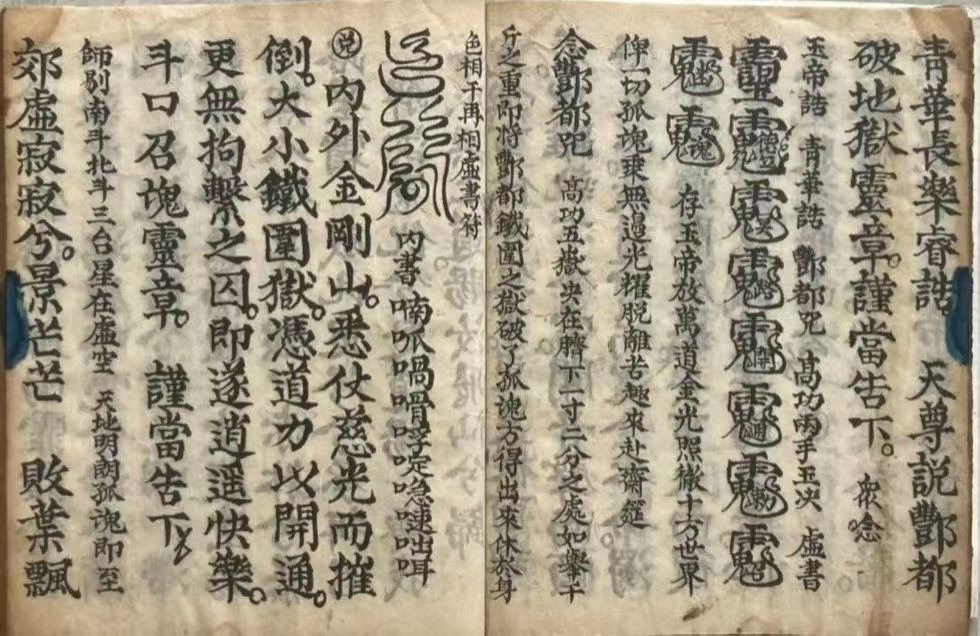 青華長樂睿誥。天尊説酆都
破地獄靈章。謹當告下。衆念
玉帝誥 青華誥 酆都咒 高功兩手玉决 虛書
存玉帝放萬道金光照徹十方世界
俾一切孤魂乘無邊光耀脱離苦趣來赴齋筵
念酆都咒 高功五嶽决在臍下一寸二分之處如舉千
斤之重即將酆都鐵圍之獄破了孤魂方得出來休於身
色相于再相虛書符
内書 喃呱喎啺哹啶唸𠴟咄咡
兑 内外金剛山。悉仗慈光而摧
倒。大小鐵圍獄。憑道力以開通。
更無拘繫之囚。即遂逍遥快樂。
斗口召魂靈章。謹當告下
師剔南斗北斗三台星在虛空 天地明朗孤魂即至
郊虛寂寂兮。景芒芒 敗葉飄